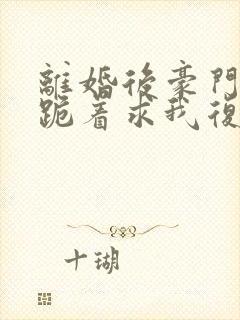 離婚後豪門
跪著求我復
十瑚